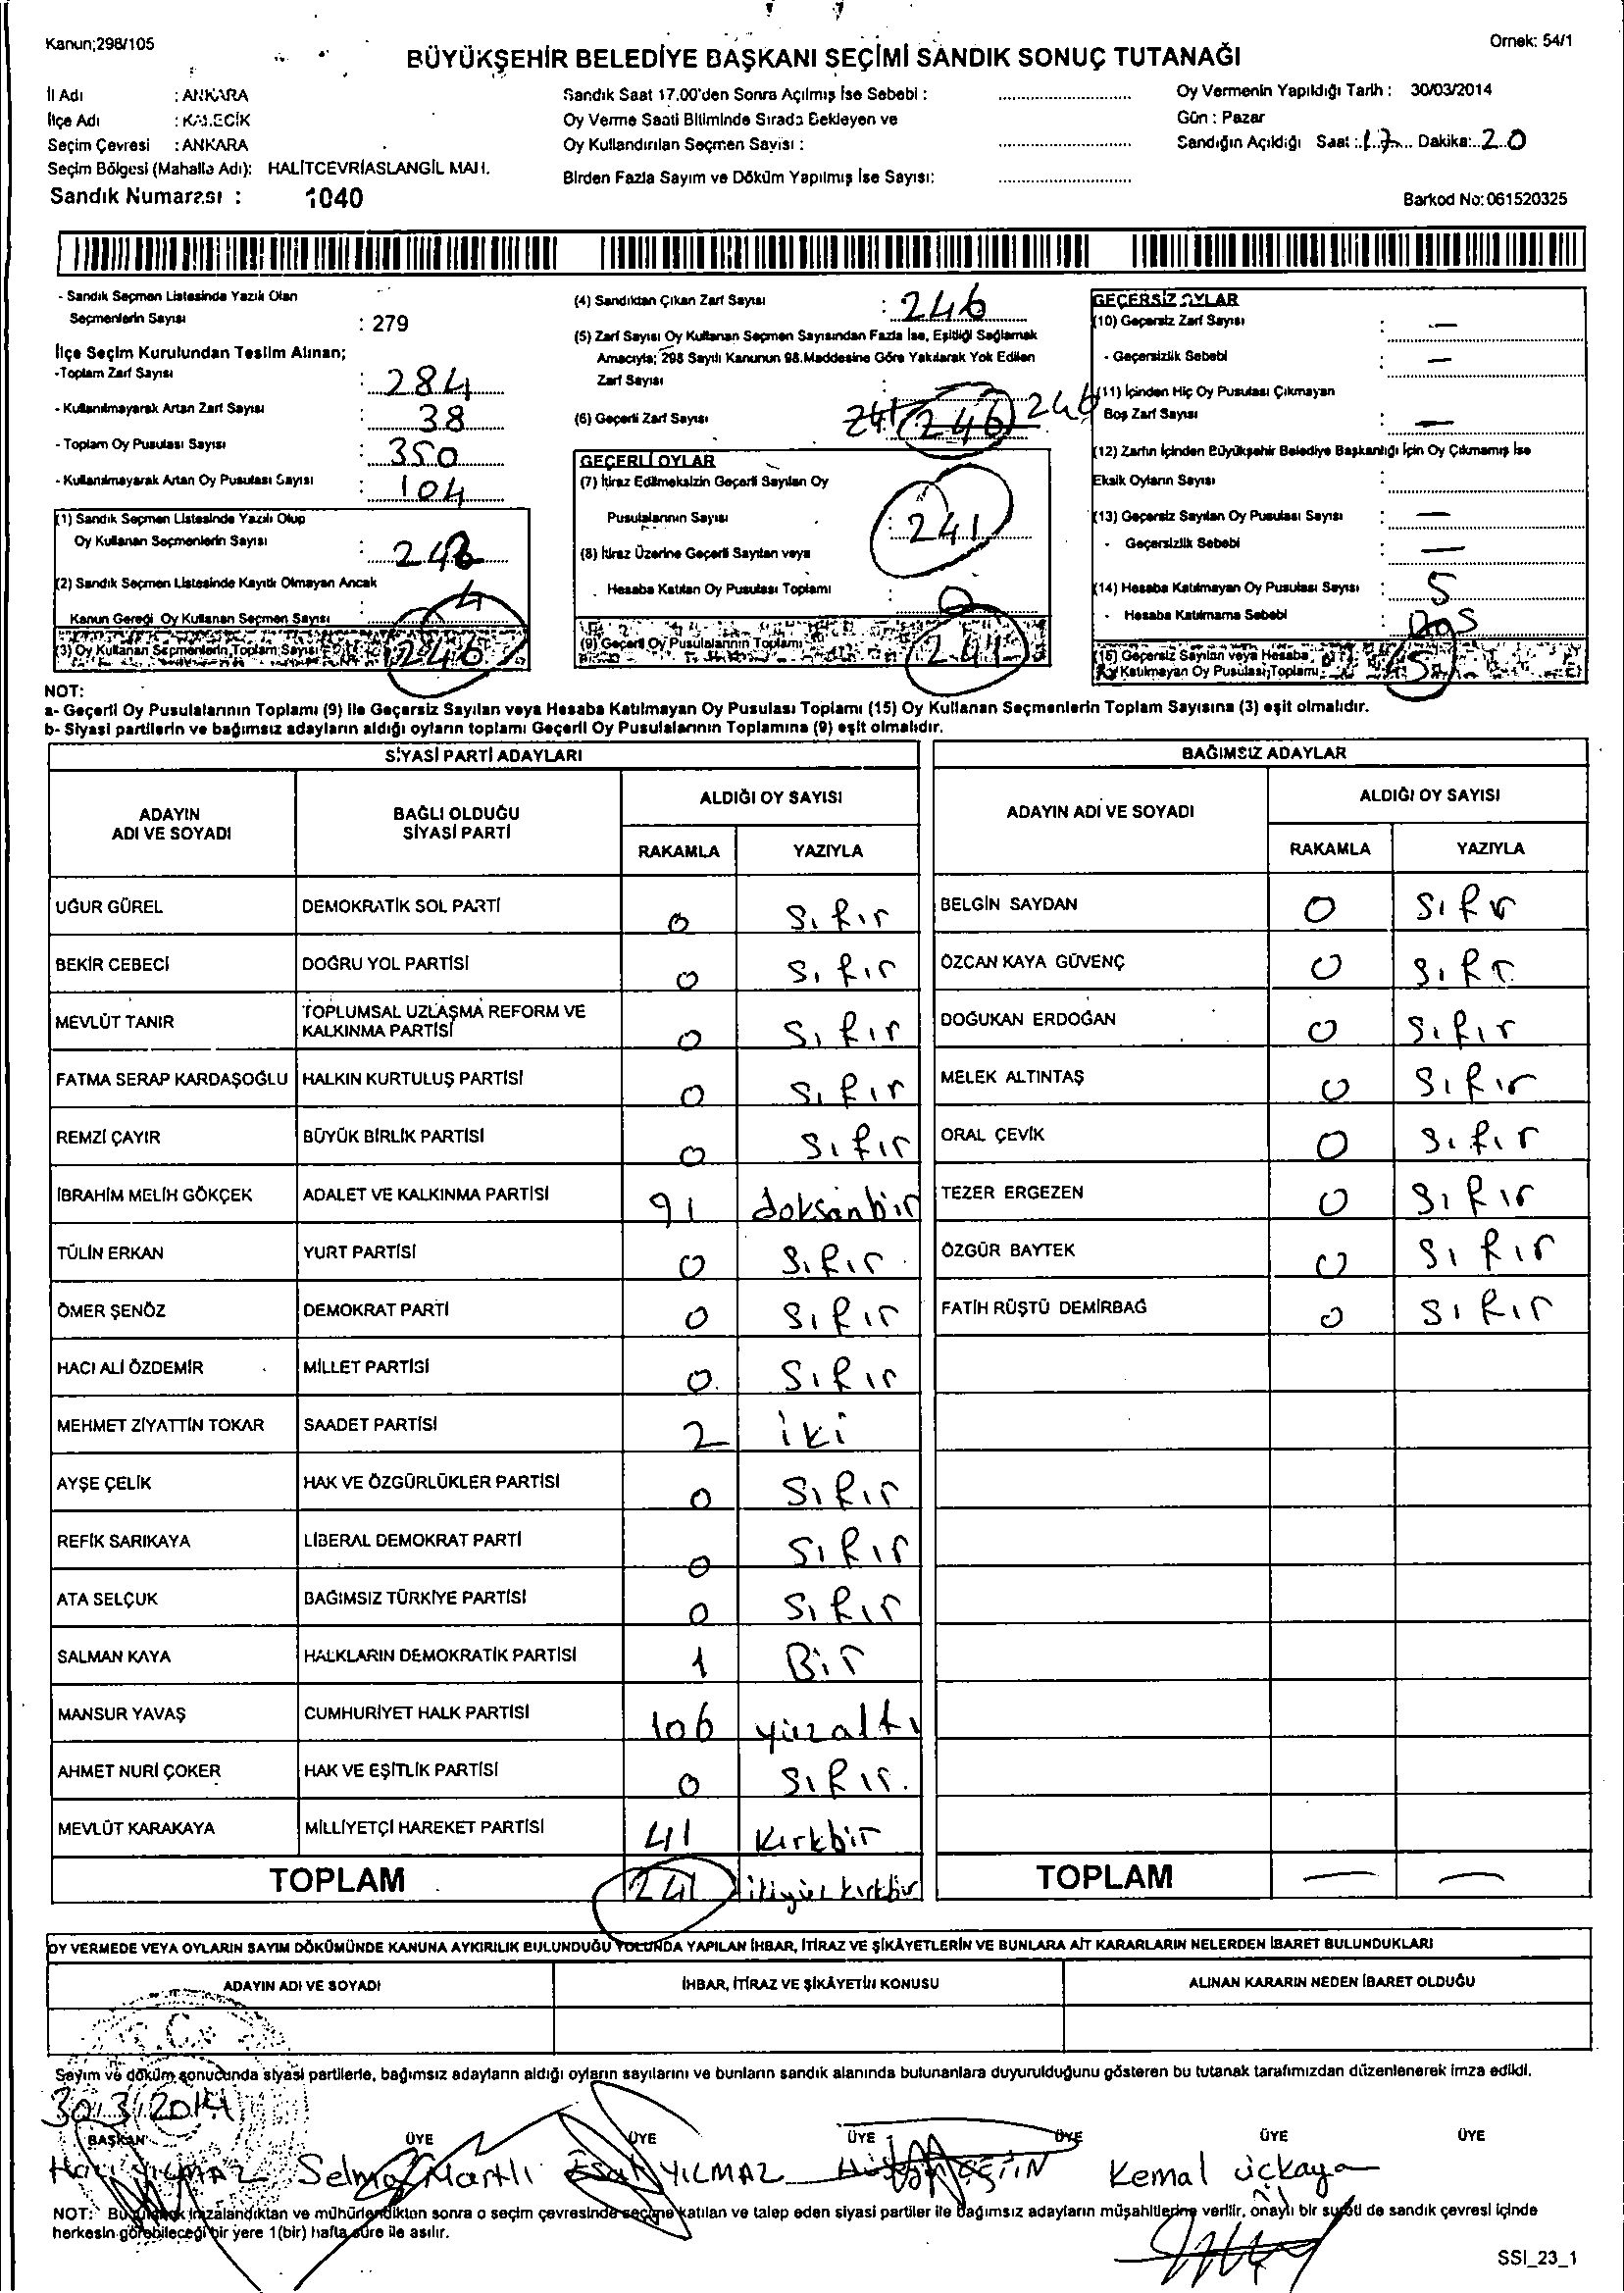 Kanun;298/105
Örnek: 54/1
BÜYÜKŞEHİR BELEDİYE BAŞKANI SEÇİMİ SANDIK SONUÇ TUTANAĞI
İl Adı : ANKARA
İlçe Adı : KALECİK
Seçim Çevresi : ANKARA
Seçim Bölgesi (Mahalle Adı): HALİTCEVRİASLANGİL MAH.
Sandık Numarası : 1040
Sandık Saat 17.00'den Sonra Açılmış İse Sebebi :
Oy Verme Saati Bitiminde Sırada Bekleyen ve
Oy Kullandırılan Seçmen Sayısı :
Birden Fazla Sayım ve Döküm Yapılmış İse Sayısı:
Oy Vermenin Yapıldığı Tarih : 30/03/2014
Gün : Pazar
Sandığın Açıldığı Saat : 17 Dakika: 20
Barkod No: 061520325
- Sandık Seçmen Listesinde Yazılı Olan
Seçmenlerin Sayısı : 279
İlçe Seçim Kurulundan Teslim Alınan;
-Toplam Zarf Sayısı : 284
- Kullanılmayarak Artan Zarf Sayısı : 38
- Toplam Oy Pusulası Sayısı : 350
- Kullanılmayarak Artan Oy Pusulası Sayısı : 104
(1) Sandık Seçmen Listesinde Yazılı Olup
Oy Kullanan Seçmenlerin Sayısı :
(2) Sandık Seçmen Listesinde Kayıtlı Olmayan Ancak
Kanun Gereği Oy Kullanan Seçmen Sayısı : 4
(3) Oy Kullanan Seçmenlerin Toplam Sayısı : 246
(4) Sandıktan Çıkan Zarf Sayısı : 246
(5) Zarf Sayısı Oy Kullanan Seçmen Sayısından Fazla İse, Eşitliği Sağlamak
Amacıyla; 298 Sayılı Kanunun 98.Maddesine Göre Yakılarak Yok Edilen
Zarf Sayısı :
(6) Geçerli Zarf Sayısı 241 246 246
GEÇERLİ OYLAR
(7) İtiraz Edilmeksizin Geçerli Sayılan Oy
Pusulalarının Sayısı : 241
(8) İtiraz Üzerine Geçerli Sayılan veya
Hesaba Katılan Oy Pusulası Toplamı : 0
(9) Geçerli Oy Pusulalarının Toplamı 241
GEÇERSİZ OYLAR
(10) Geçersiz Zarf Sayısı : —
- Geçersizlik Sebebi : —
(11) İçinden Hiç Oy Pusulası Çıkmayan
Boş Zarf Sayısı : —
(12) Zarfın İçinden Büyükşehir Belediye Başkanlığı İçin Oy Çıkmamış İse
Eksik Oyların Sayısı :
(13) Geçersiz Sayılan Oy Pusulası Sayısı : —
- Geçersizlik Sebebi : —
(14) Hesaba Katılmayan Oy Pusulası Sayısı : 5
- Hesaba Katılmama Sebebi : Boş
(15) Geçersiz Sayılan veya Hesaba
Katılmayan Oy Pusulası Toplamı 5
NOT:
a- Geçerli Oy Pusulalarının Toplamı (9) ile Geçersiz Sayılan veya Hesaba Katılmayan Oy Pusulası Toplamı (15) Oy Kullanan Seçmenlerin Toplam Sayısına (3) eşit olmalıdır.
b- Siyasi partilerin ve bağımsız adayların aldığı oyların toplamı Geçerli Oy Pusulalarının Toplamına (9) eşit olmalıdır.
SİYASİ PARTİ ADAYLARI
ADAYIN ADI VE SOYADI
BAĞLI OLDUĞU SİYASİ PARTİ
ALDIĞI OY SAYISI
RAKAMLA YAZIYLA
UĞUR GÜREL DEMOKRATİK SOL PARTİ 0 Sıfır
BEKİR CEBECİ DOĞRU YOL PARTİSİ 0 Sıfır
MEVLÜT TANIR TOPLUMSAL UZLAŞMA REFORM VE KALKINMA PARTİSİ 0 Sıfır
FATMA SERAP KARDAŞOĞLU HALKIN KURTULUŞ PARTİSİ 0 Sıfır
REMZİ ÇAYIR BÜYÜK BİRLİK PARTİSİ 0 Sıfır
İBRAHİM MELİH GÖKÇEK ADALET VE KALKINMA PARTİSİ 91 doksanbir
TÜLİN ERKAN YURT PARTİSİ 0 Sıfır
ÖMER ŞENÖZ DEMOKRAT PARTİ 0 Sıfır
HACI ALİ ÖZDEMİR MİLLET PARTİSİ 0 Sıfır
MEHMET ZİYATTİN TOKAR SAADET PARTİSİ 2 iki
AYŞE ÇELİK HAK VE ÖZGÜRLÜKLER PARTİSİ 0 Sıfır
REFİK SARIKAYA LİBERAL DEMOKRAT PARTİ 0 Sıfır
ATA SELÇUK BAĞIMSIZ TÜRKİYE PARTİSİ 0 Sıfır
SALMAN KAYA HALKLARIN DEMOKRATİK PARTİSİ 1 Bir
MANSUR YAVAŞ CUMHURİYET HALK PARTİSİ 106 yüzaltı
AHMET NURİ ÇOKER HAK VE EŞİTLİK PARTİSİ 0 Sıfır.
MEVLÜT KARAKAYA MİLLİYETÇİ HAREKET PARTİSİ 41 Kırkbir
TOPLAM 241 ikiyüz kırkbir
BAĞIMSIZ ADAYLAR
ADAYIN ADI VE SOYADI
ALDIĞI OY SAYISI
RAKAMLA YAZIYLA
BELGİN SAYDAN 0 Sıfır
ÖZCAN KAYA GÜVENÇ 0 Sıfr
DOĞUKAN ERDOĞAN 0 Sıfır
MELEK ALTINTAŞ 0 Sıfır
ORAL ÇEVİK 0 Sıfır
TEZER ERGEZEN 0 Sıfır
ÖZGÜR BAYTEK 0 Sıfır
FATİH RÜŞTÜ DEMİRBAĞ 0 Sıfır
TOPLAM — —
OY VERMEDE VEYA OYLARIN SAYIM DÖKÜMÜNDE KANUNA AYKIRILIK BULUNDUĞU YOLUNDA YAPILAN İHBAR, İTİRAZ VE ŞİKÂYETLERİN VE BUNLARA AİT KARARLARIN NELERDEN İBARET BULUNDUKLARI
ADAYIN ADI VE SOYADI İHBAR, İTİRAZ VE ŞİKÂYETİN KONUSU ALINAN KARARIN NEDEN İBARET OLDUĞU
Sayım ve döküm sonucunda siyasi partilerle, bağımsız adayların aldığı oyların sayılarını ve bunların sandık alanında bulunanlara duyurulduğunu gösteren bu tutanak tarafımızdan düzenlenerek imza edildi.
30/3/2014
BAŞKAN ÜYE ÜYE ÜYE ÜYE ÜYE ÜYE
YILMAZ Selma Martlı YILMAZ Kemal üçkaya
NOT: Bu tutanak imzalandıktan ve mühürlendikten sonra o seçim çevresinde seçime katılan ve talep eden siyasi partiler ile bağımsız adayların müşahitlerine verilir, onaylı bir sureti de sandık çevresi içinde
herkesin görebileceği bir yere 1(bir) hafta süre ile asılır.
SSI_23_1